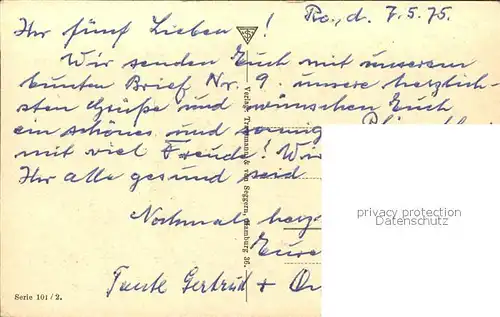 Ro., d. 7.5.75.
Ihr fünf Lieben!
Wir senden Euch mit unserem
bunten Brief Nr. 9. unsere herzlich-
sten Grüße und wünschen Euch
ein schönes und sonnig
mit viel Freude! Wir
Ihr alle gesund seid
Nochmals herz
Eure
Tante Gertrud +
Verlag Trautmann & von Seggern, Hamburg 36.
Serie 101/2.
privacy protection
Datenschutz